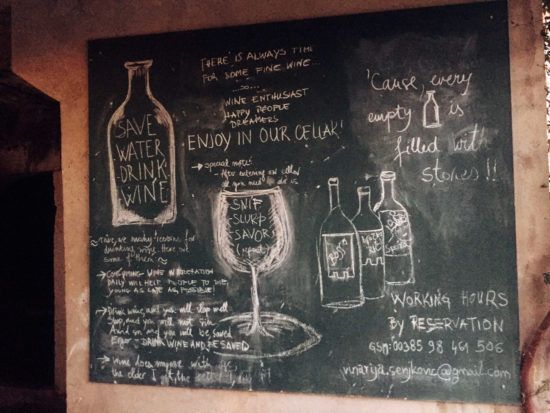 SAVE
WATER
DRINK
WINE
THERE IS ALWAYS TIME
FOR SOME FINE WINE...
...SO...
WINE ENTHUSIAST
HAPPY PEOPLE
DREAMERS
ENJOY IN OUR CELLAR!
→ special note:
After entering our cellar
all you need to do is
SNIF
SLURP
SAVOR
(repeat)
'Cause, every
empty is
filled with
stories!!
≈ There are many reasons for
drinking wine. Here are
some of them ≈
→ CONSUMING WINE IN MODERATION
DAILY WILL HELP PEOPLE TO DIE
YOUNG AS LATE AS POSSIBLE!
→ Drink wine, and you will sleep well
Sleep, and you will not sin
Avoid sin, and you will be saved
Ergo - DRINK WINE AND BE SAVED
→ Wine does improve with age,
the older I get, the
WORKING HOURS
BY RESERVATION
GSM: 00385 98 461 506
vinarija.senjkovic@gmail.com